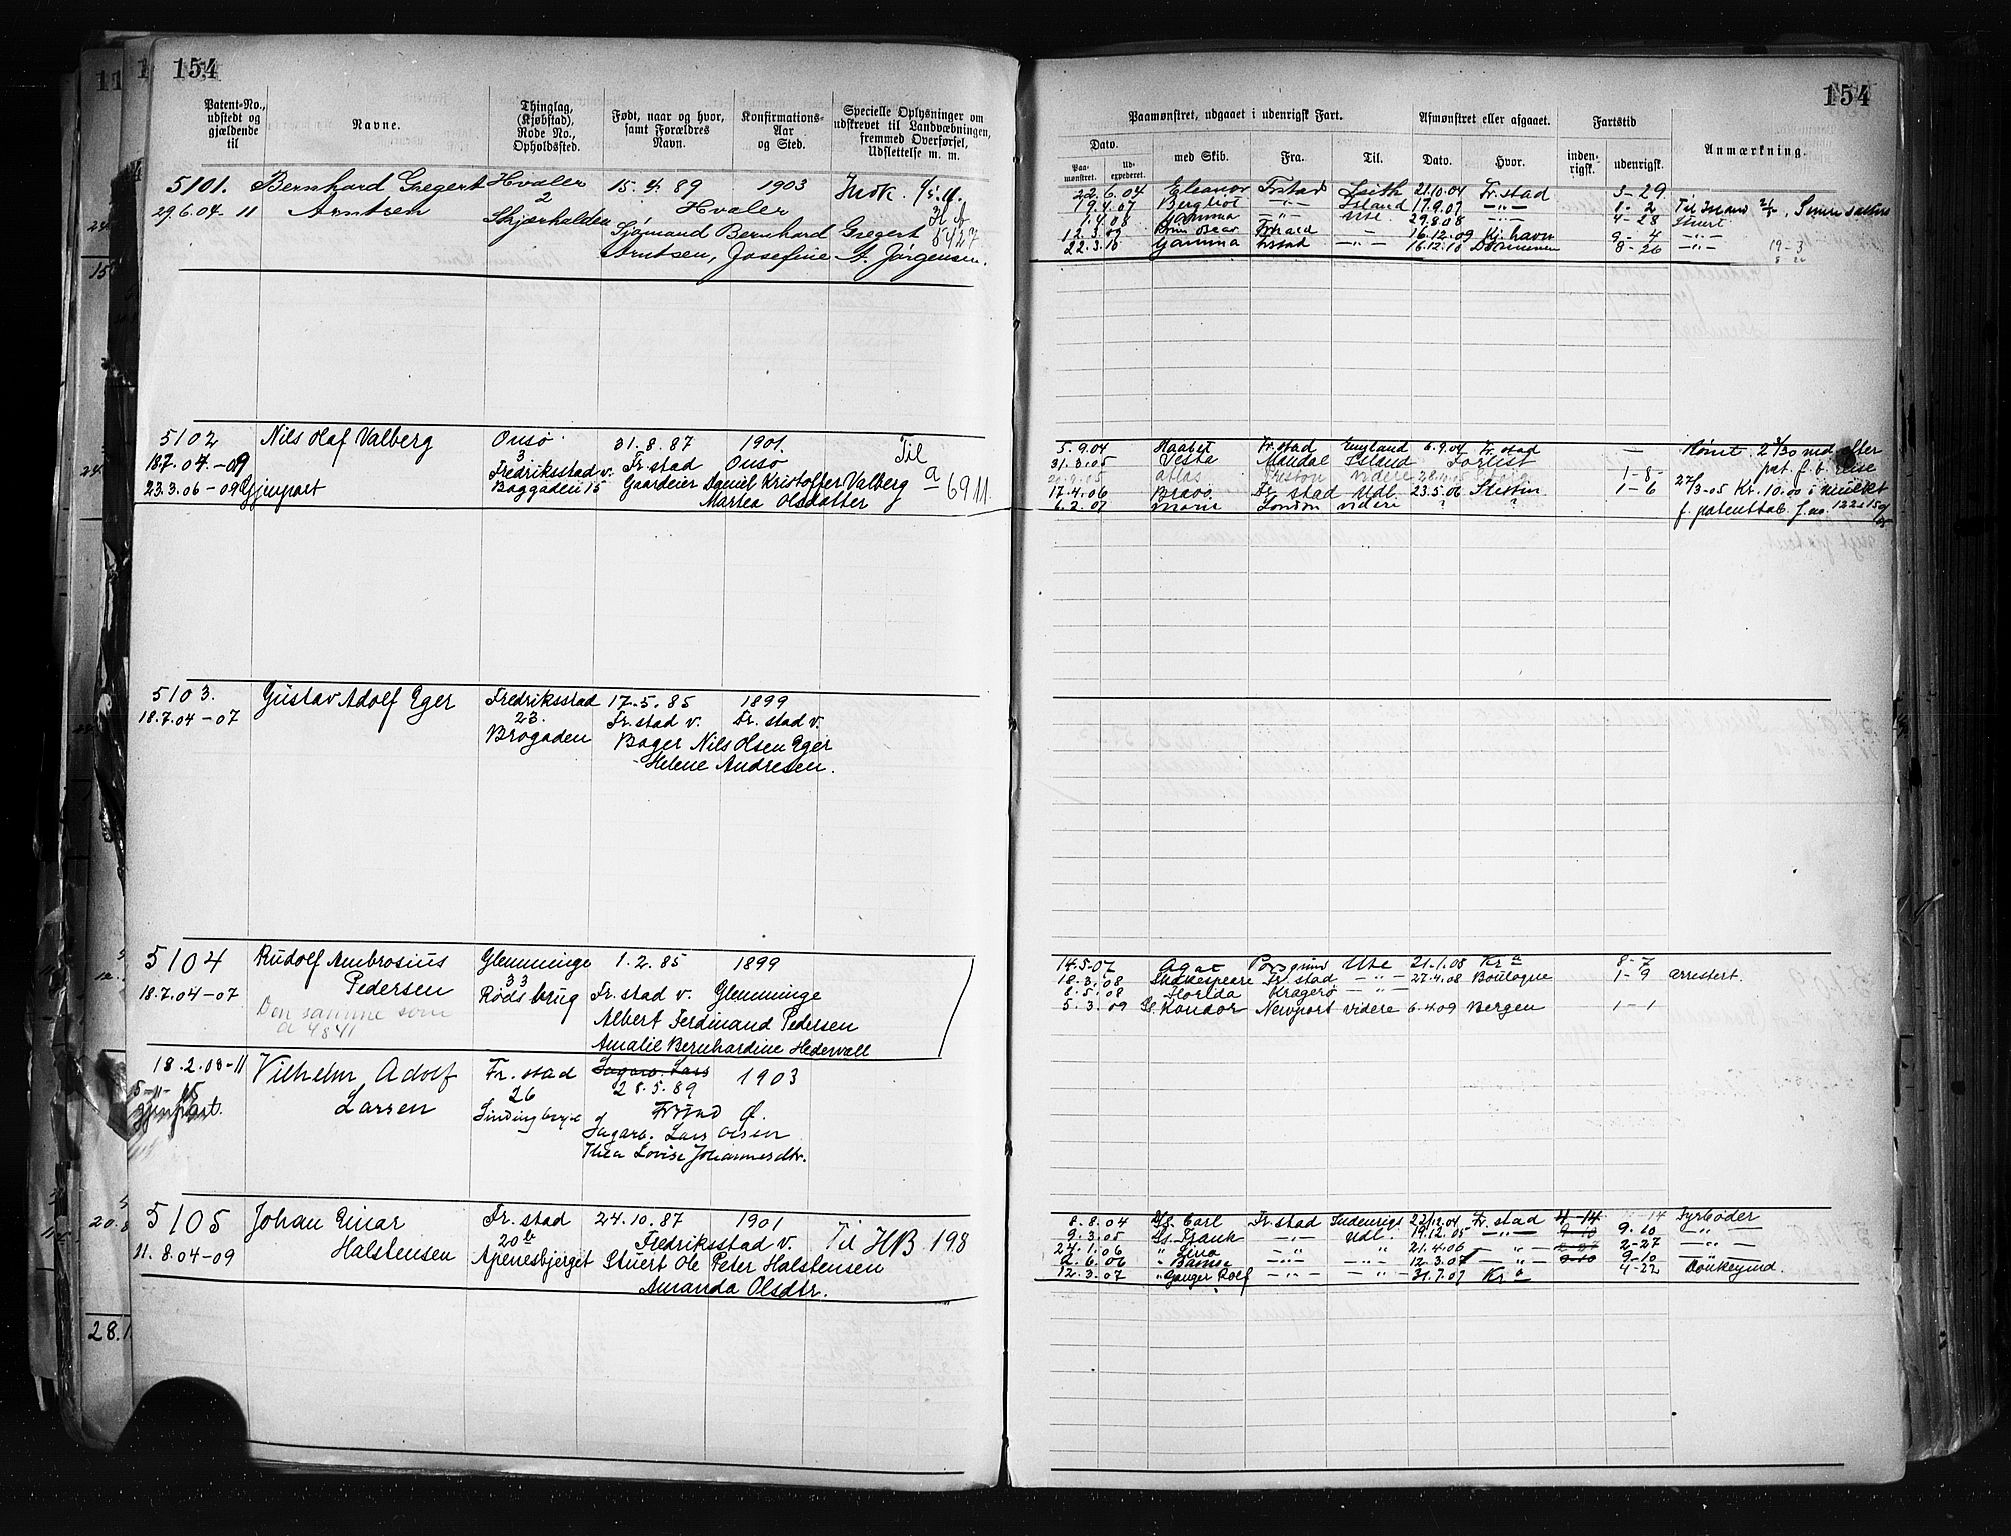 154
Patent-No., udstedt og gjældende til
Navne.
Thinglag, (Kjøbstad), Rode No., Opholdssted.
Født, naar og hvor, samt Forældres Navn.
Konfirmations-Aar og Sted.
Specielle Oplysninger om udskrevet til Landværbningen, fremmed Overførsel, Udslettelse m. m.
5101. Bernhard Gregert Hvaler 15.4.89 1903
29.6.04-11 Arntsen 2 Hvaler
Skjærhalden Sjømand Bernhard Gregert
Arntsen, Josefine A. Jørgensen.
5102 Nils Olaf Valberg Onsø 31.8.87 1901. Til
18.7.04-09 3. Fredriksstad v. Fr. stad Onsø a
23.3.06-09 Gjenpart Baggaden 15 Gaardeier Daniel Kristoffer Valberg 6911
Martea Olsdatter
5103. Gustav Adolf Eger Fredriksstad 17.5.85 1899
18.7.04-07 23. Fr. stad v. Fr. stad v.
Brogaden Bager Nils Olsen Eger
Helene Andresen.
5104 Rudolf Ambrosius Glemminge 1.2.85 1899
Pedersen 33
18.7.04-07 Røds brug Fr. stad v. Glemminge
Den samme som Albert Ferdinand Pedersen
a 4841 Amalie Bernhardine Hedervall
18.2.08-11 Vilhelm Adolf Fr. stad 28.5.89 1903
Larsen 26
Gjenpart.
Jagarb. Lars Olsen
Thea Lovise Johannesdtr.
5105 Johan Einar Fr. stad 24.10.87 1901 Til HB 198
Halstensen 20b Fredriksstad v.
11.8.04-09 Apenesbjerget Stuert Ole Peter Halstensen
Amanda Olsdtr.
154
Paamønstret, udgaaet i udenrigsk Fart.
Afmønstret eller afgaaet.
Fartstid
Anmærkning.
Dato.
Paamønstret.
Udexpederet.
med Skib.
Fra.
Til.
Dato.
Hvor.
indenrigsk.
udenrigsk.
22.6.04 Eleanor Frstad Leith 21.10.04 Fr. stad 3-29
19.4.07 Bergliot -"- Island 17.9.07 -"- 1-2
1.4.08 Gamma -"- Ute 29.8.08 -"- 4-28
12.3.09 16.12.09 Kj. havn 9-4 -"-
22.3.10 Gamma Frstad -"- 16.12.10 8-26 -"- 19-3
5.9.04 Fr. stad England 6.9.04 Fr. stad —
31.3.05 Vesta Mandal Island Forlist
Atlas Videre 1-8-
17.4.06 Bravo Fr. stad Udl. 23.5.06 Stettin 1-6 27/3-05 Kr. 10.00 i mulkt
6.2.07 London videre ? ? f. patenttab
14.5.07 Agat Porsgrund Ute 21.1.08 Kr a 8-7
18.3.08 Shakespeare Fr. stad -"- 27.4.08 Boulogne 1-9 arrestert
8.5.08 Florida Kragerø -"-
5.3.09 Kondor Newport videre 6.4.09 Bergen 1-1
8.8.04 Carl Fr. stad Indenrigs 22/12.04 Fr. stad 4-14 14 Fyrbøder
9.3.05 Frank -"- Udl. 19.12.05 -"- 9-10 9-10 -"-
24.1.06 " Lina -"- " 21.4.06 -"- 2-27 2-27 -"-
2.6.06 " -"- -"- 12.3.07 -"- 9-10 9-10
12.3.07 " Ganger Rolf -"- -"- 31.7.07 Kr a 4-22 Donkeymd.